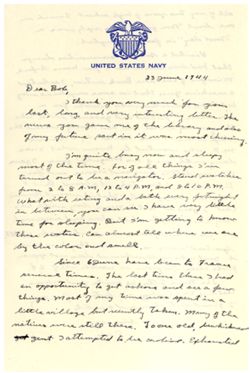 UNITED STATES NAVY
23 June 1944
Dear Bob,
I thank you very much for your
last, long and very interesting letter. The
news you gave me of the library and also
of my future part in it was most cheering.
I'm quite busy now and sleepy
most of the time. For of all things I'm
turned out to be a navigator. Stand watches
from 2 to 8 A.M., 12 to 4 P.M. and 8 to 10 P.M.
What with eating and a bath every fortnight
in between, you can see I have very little
time for sleeping. But I'm getting to know
these waters. Can almost tell where we are
by the color and smell.
Since 6 June have been to France
several times. The last time there I had
an opportunity to get ashore and see a few
things. Most of my time was spent in a
little village but recently taken. Many of the
natives were still there. To one old,
gent I attempted to be cordial. Exhausted